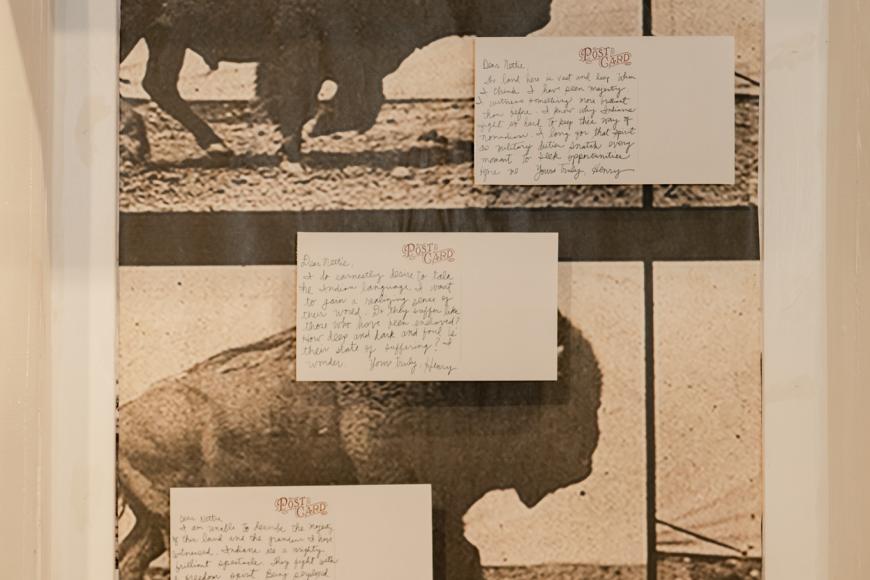 POST CARD
Dear Nettie,
The land here is vast and deep when
I think I have seen majesty
I witness something more brilliant
than before. I know why Indians
fight so hard to keep their way of
nomadism. I long for that spirit
as military duties snatch every
moment to seek opportunities
Yours Truly, Henry
POST CARD
Dear Nettie,
I do earnestly desire to talk
the Indian language. I want
to gain a realizing sense of
their world. Do they suffer like
those who have been enslaved?
How deep and dark and foul is
their state of suffering? I
wonder. Yours Truly, Henry
POST CARD
Dear Nettie,
I am unable to describe the majesty
of this land and the grandeur I have
witnessed. Indians are a mighty
brilliant spectacle. They fight with
a freedom spirit. Being